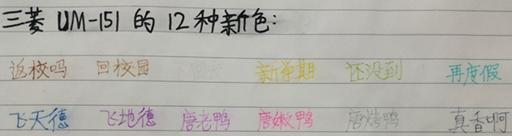 三菱 UM-151 的 12 种新色:
返校吗 回校园 新学期 还没到 再度假
飞天德 飞地德 唐老鸭 唐嫩鸭 唐烤鸭 真香啊